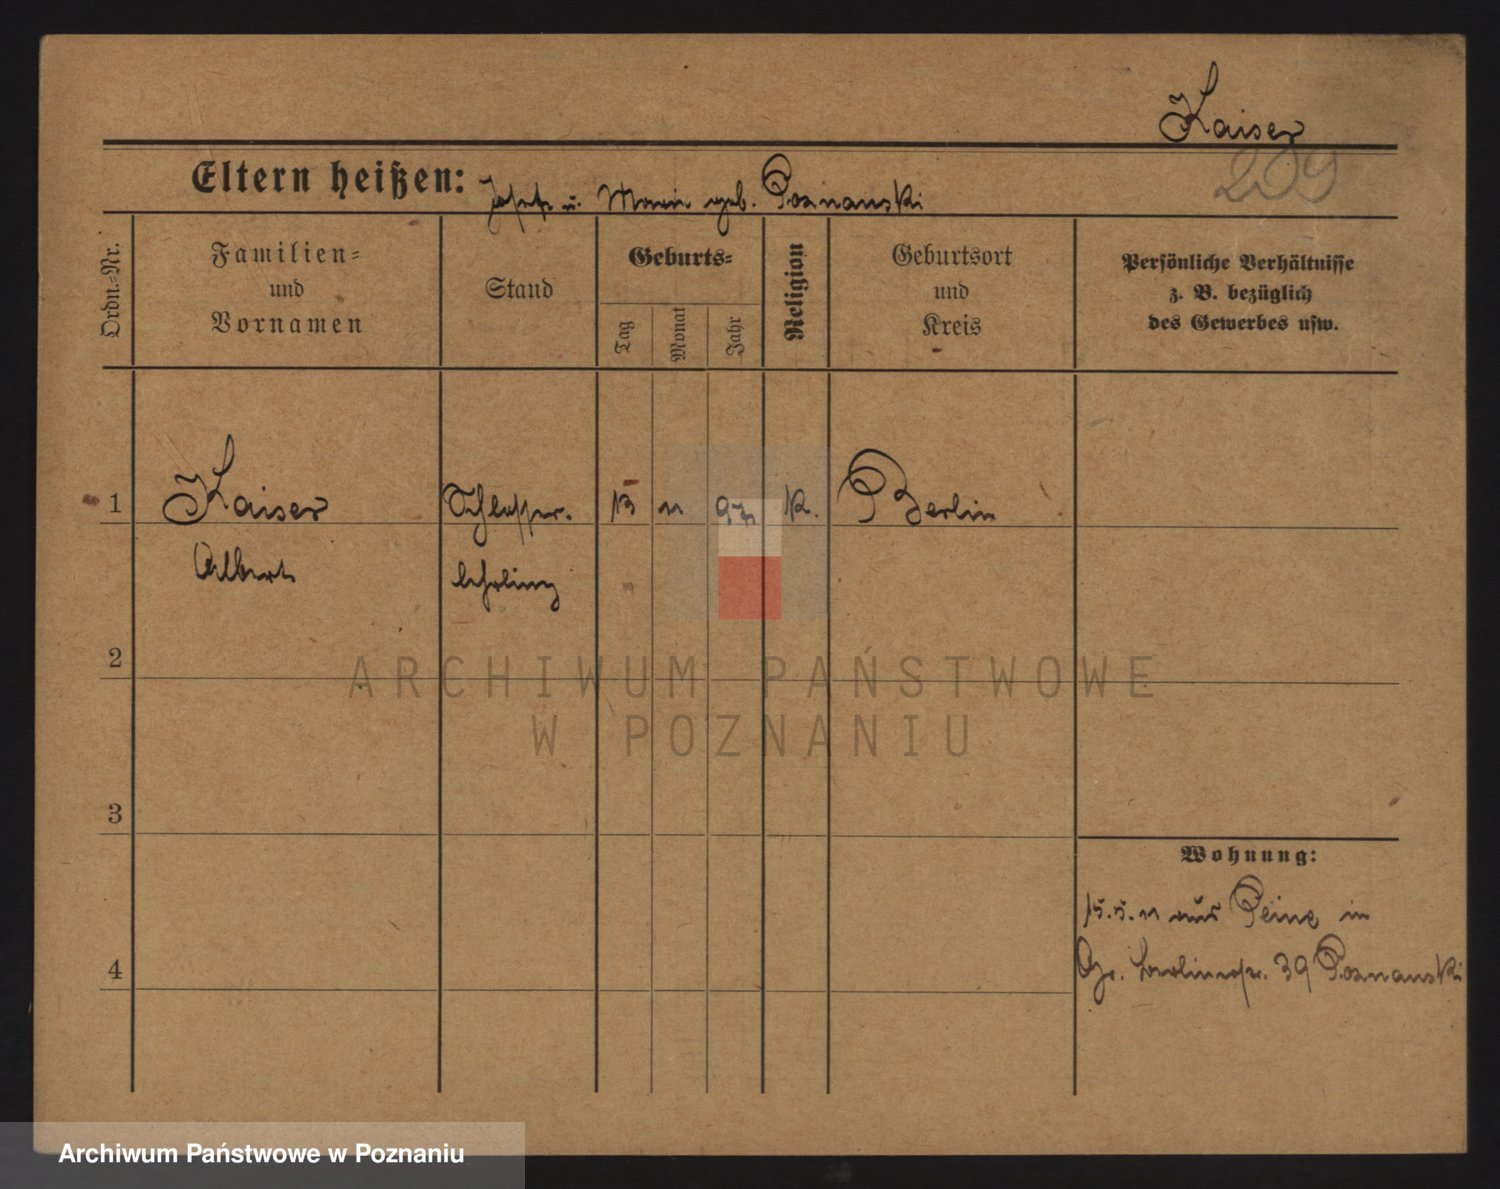 Kaiser
209
Eltern heißen: Josef u. Marie geb. Posnanski
Ordn.-Nr.
Familien-
und
Vornamen
Stand
Geburts-
Tag
Monat
Jahr
Religion
Geburtsort
und
Kreis
Persönliche Verhältnisse
z. B. bezüglich
des Gewerbes usw.
1 Kaiser Schlosser- 13 11 97 K. Berlin
Albert lehrling
2
ARCHIWUM PAŃSTWOWE
W POZNANIU
3
Wohnung:
15.5.11 aus Peine in
4 Gr. Berlinerstr. 39 Posnanski
Archiwum Państwowe w Poznaniu